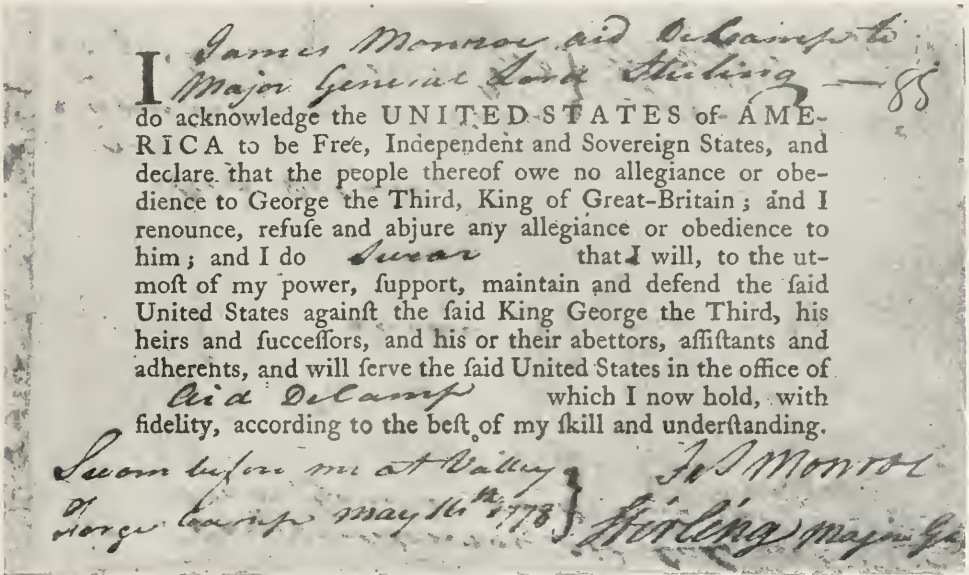 James Monroe aid DeCamp to
I Major General Lord Stirling — 85
do acknowledge the UNITED STATES of AME-
RICA to be Free, Independent and Sovereign States, and
declare that the people thereof owe no allegiance or obe-
dience to George the Third, King of Great-Britain; and I
renounce, refuſe and abjure any allegiance or obedience to
him; and I do Swear that I will, to the ut-
moſt of my power, ſupport, maintain and defend the ſaid
United States againſt the ſaid King George the Third, his
heirs and ſucceſſors, and his or their abettors, aſſiſtants and
adherents, and will ſerve the ſaid United States in the office of
Aid DeCamp which I now hold, with
fidelity, according to the beſt of my ſkill and underſtanding.
Sworn before me at Valley
Forge Camp May 16th 1778
Jas Monroe
Stirling Major